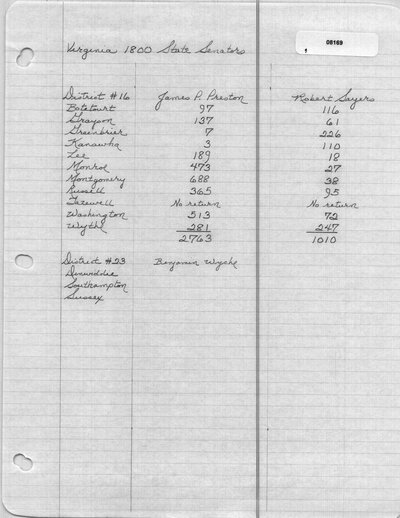 Virginia 1800 State Senators
08169
1
District #16 James P. Preston Robert Sayers
Botetourt 97 116
Grayson 137 61
Greenbrier 7 226
Kanawha 3 110
Lee 189 18
Monroe 473 27
Montgomery 688 38
Russell 365 95
Tazewell No return No return
Washington 513 72
Wythe 281 247
2763 1010
District #23 Benjamin Wyche
Dinwiddie
Southampton
Sussex